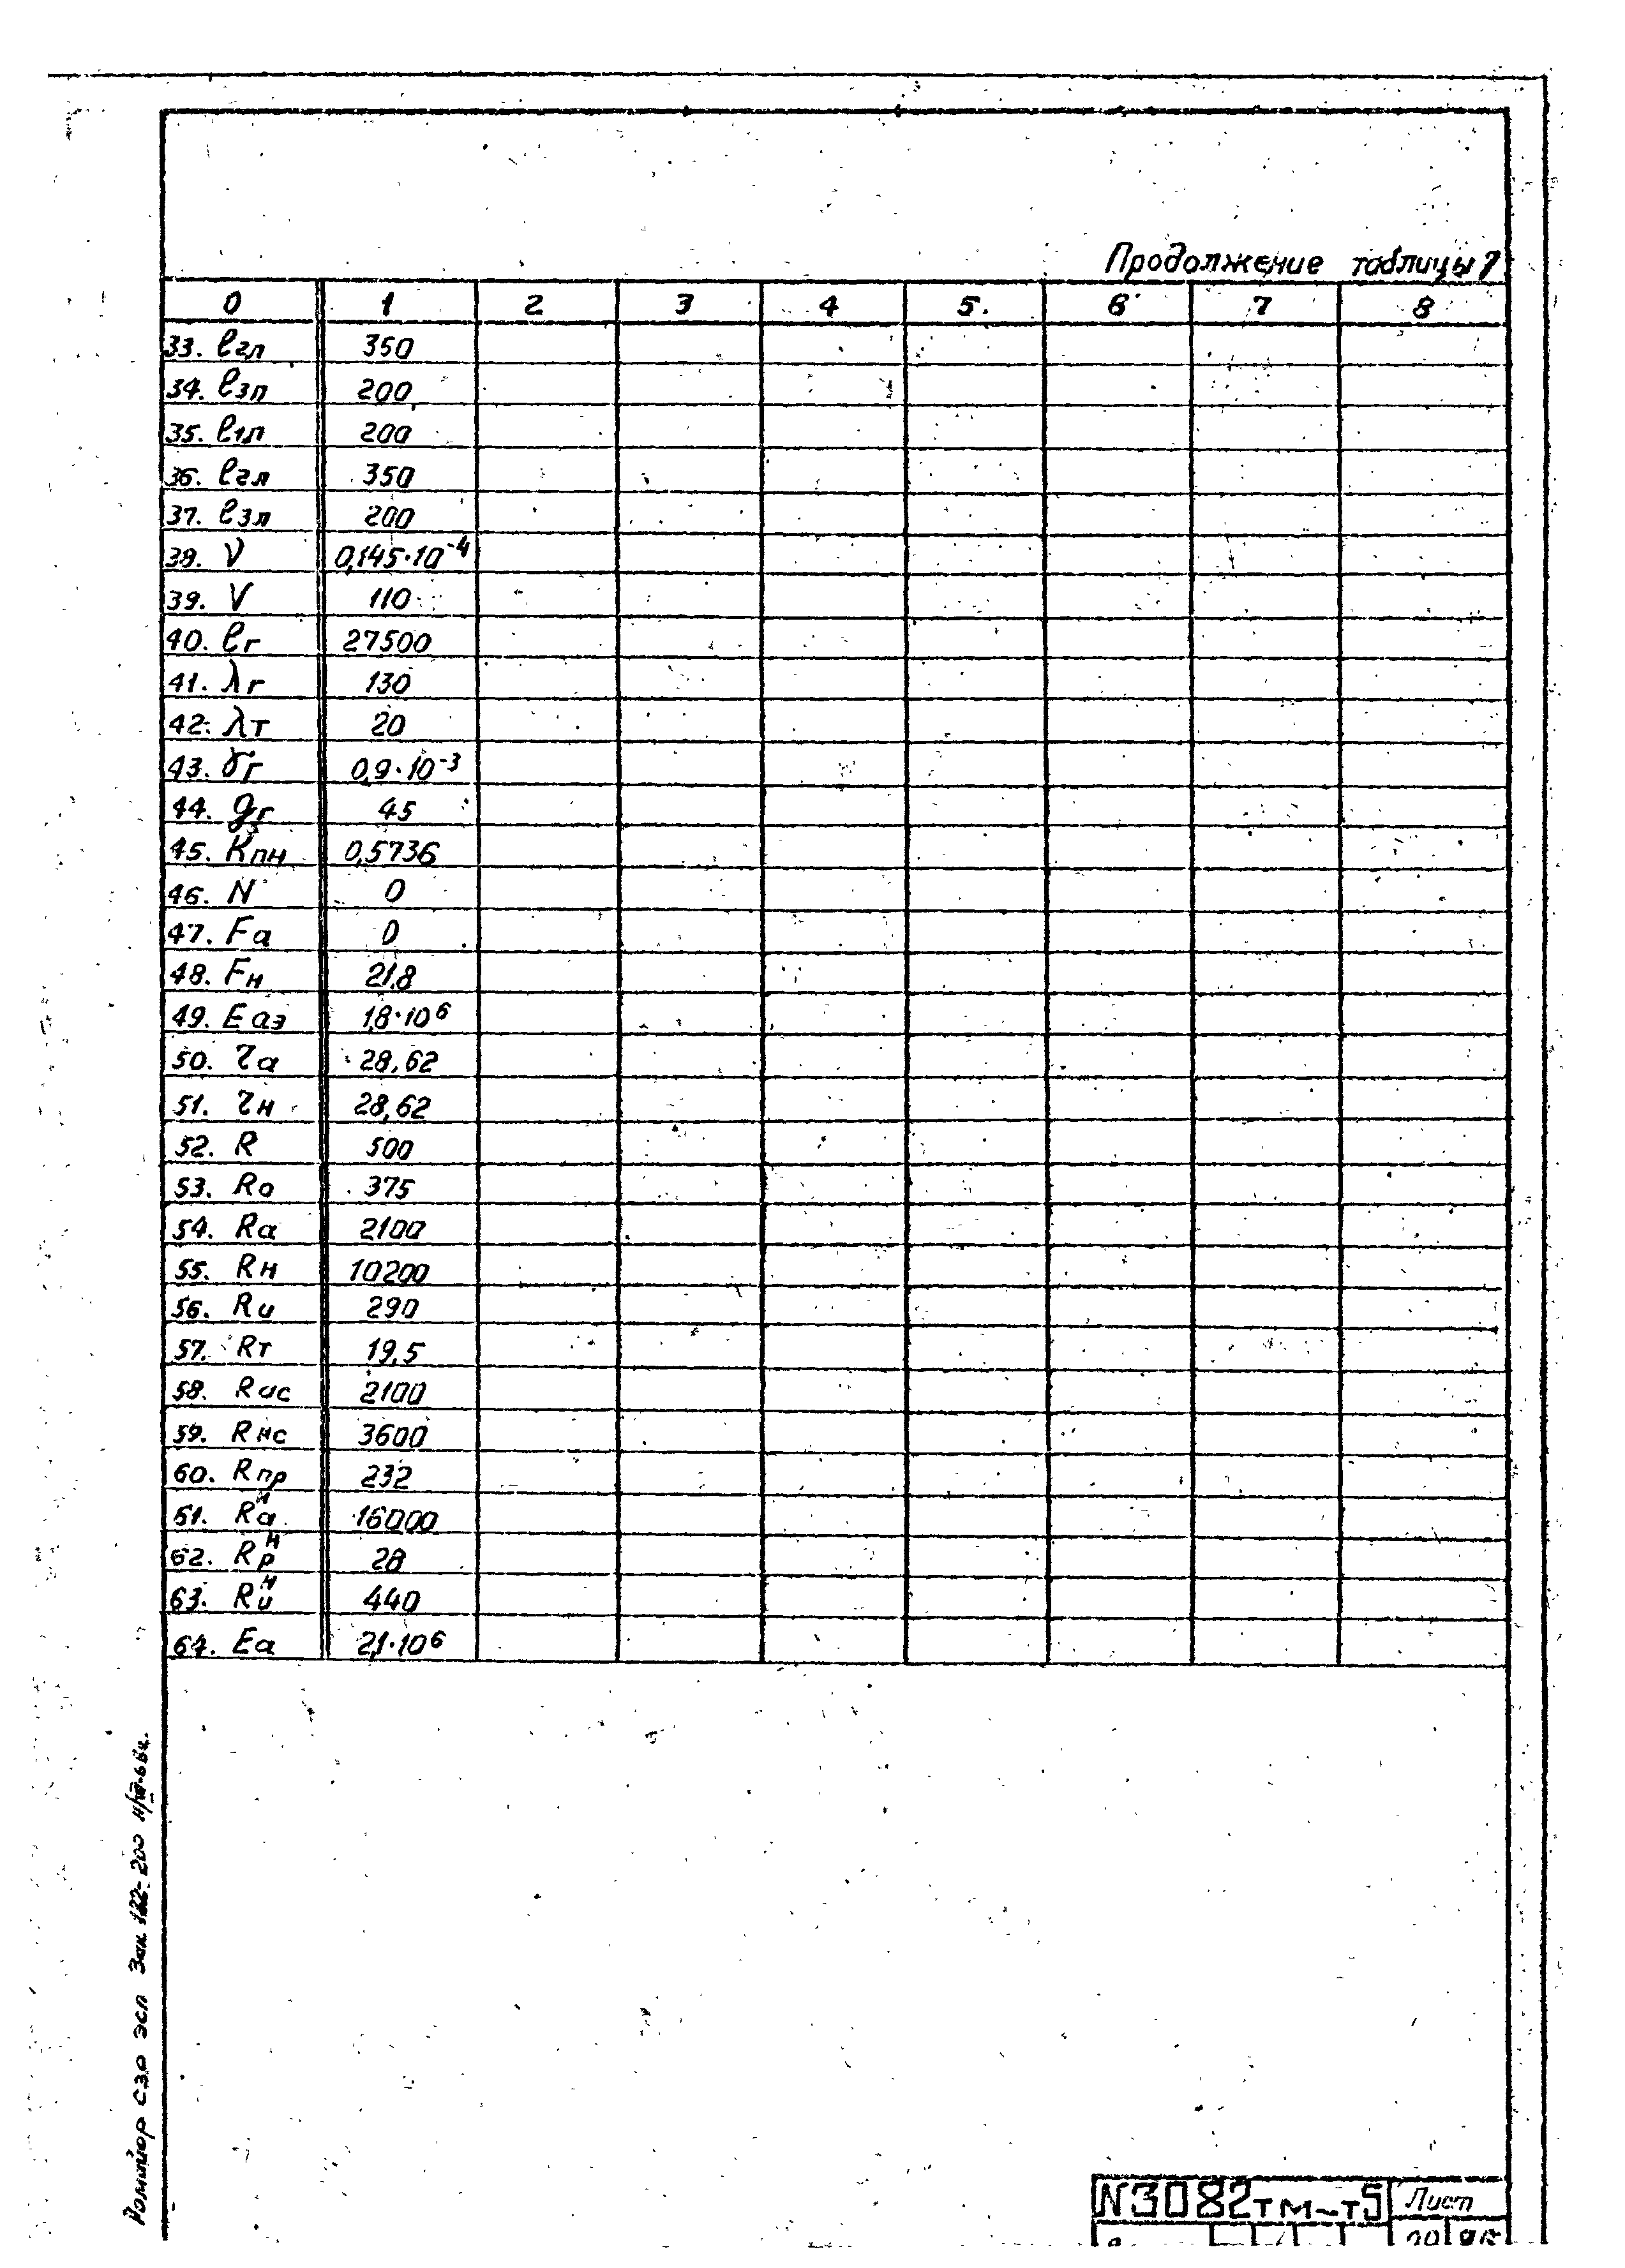 Продолжение таблицы 7
0 1 2 3 4 5. 6 7 8
33. ℓ2п 350
34. ℓ3п 200
35. ℓ1л 200
36. ℓ2л 350
37. ℓ3л 200
38. ν 0,145·10⁻⁴
39. V 110
40. ℓг 27500
41. λг 130
42. λт 20
43. γг 0,9·10⁻³
44. gг 45
45. Kпн 0,5736
46. N 0
47. Fа 0
48. Fн 21,8
49. Eаэ 1,8·10⁶
50. τа 28,62
51. τн 28,62
52. R 500
53. Rо 375
54. Rа 2100
55. Rн 10200
56. Rи 290
57. Rт 19,5
58. Rас 2100
59. Rнс 3600
60. Rпр 232
61. Rаᴴ 16000
62. Rрᴴ 28
63. Rиᴴ 440
64. Eа 2,1·10⁶
СЗО ЭСП Зак 122-200
N3082тм-т5 Лист